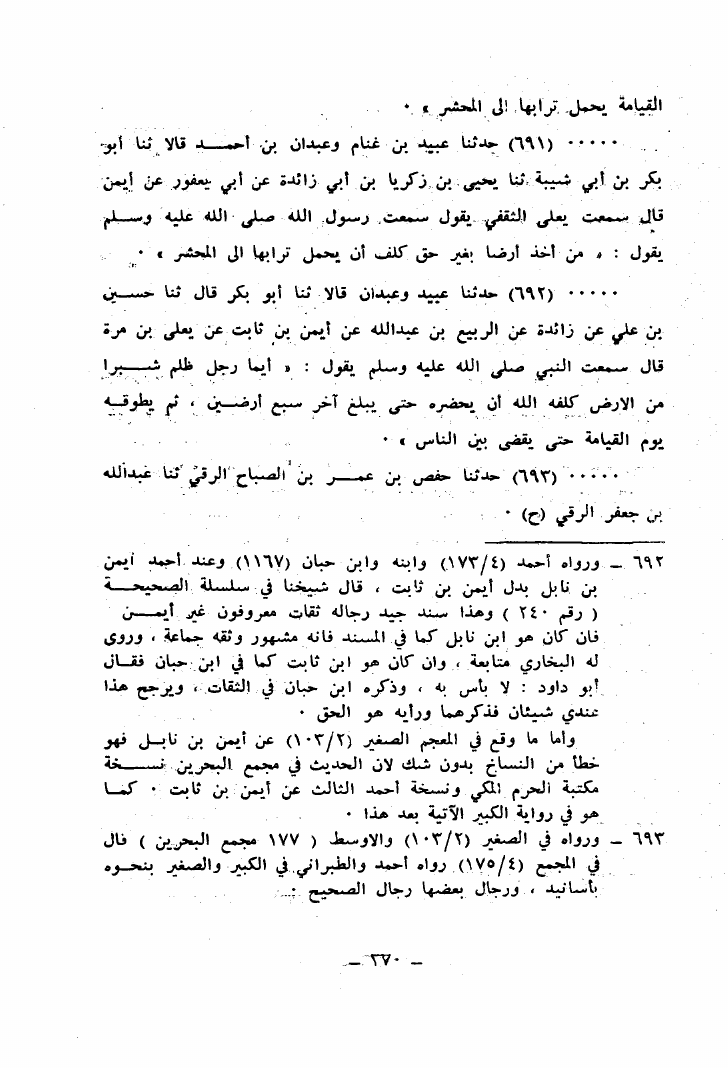 القيامة يحمل ترابها الى المحشر » ٠
٠٠٠٠٠ (٦٩١) حدثنا عبيد بن غنام وعبدان بن أحمــد قالا ثنا أبو
بكر بن أبي شيبة ثنا يحيى بن زكريا بن أبي زائدة عن أبي يعفور عن أيمن
قال سمعت يعلى الثقفي يقول سمعت رسول الله صلى الله عليه وســلم
يقول : « من أخذ أرضا بغير حق كلف أن يحمل ترابها الى المحشر » ٠
٠٠٠٠٠ (٦٩٢) حدثنا عبيد وعبدان قالا ثنا أبو بكر قال ثنا حســين
بن علي عن زائدة عن الربيع بن عبدالله عن أيمن بن ثابت عن يعلى بن مرة
قال سمعت النبي صلى الله عليه وسلم يقول : « أيما رجل ظلم شـــبرا
من الارض كلفه الله أن يحضره حتى يبلغ آخر سبع أرضــين ، ثم يطوقــه
يوم القيامة حتى يقضى بين الناس » ٠
٠٠٠٠٠ (٦٩٣) حدثنا حفص بن عمـــر بن الصباح الرقي ثنا عبدالله
بن جعفر الرقي (ح) ٠
٦٩٢ ــ ورواه أحمد (١٧٣/٤) وابنه وابن حبان (١١٦٧) وعند أحمد أيمن
بن نابل بدل أيمن بن ثابت ، قال شيخنا في سلسلة الصحيحــة
( رقم ٢٤٠ ) وهذا سند جيد رجاله ثقات معروفون غير أيمـــن
فان كان هو ابن نابل كما في المسند فانه مشهور وثقه جماعة ، وروى
له البخاري متابعة ، وان كان هو ابن ثابت كما في ابن حبان فقــال
أبو داود : لا بأس به ، وذكره ابن حبان في الثقات ، ويرجح هذا
عندي شيئان فذكرهما ورأيه هو الحق ٠
وأما ما وقع في المعجم الصغير (١٠٣/٢) عن أيمن بن نابــل فهو
خطأ من النساخ بدون شك لان الحديث في مجمع البحرين نســـخة
مكتبة الحرم المكي ونسخة أحمد الثالث عن أيمن بن ثابت ٠ كمــا
هو في رواية الكبير الآتية بعد هذا ٠
٦٩٣ ــ ورواه في الصغير (١٠٣/٢) والاوسط ( ١٧٧ مجمع البحرين ) قال
في المجمع (١٧٥/٤) رواه أحمد والطبراني في الكبير والصغير بنحــوه
بأسانيد ، ورجال بعضها رجال الصحيح :
ــ ٢٧٠ ــ